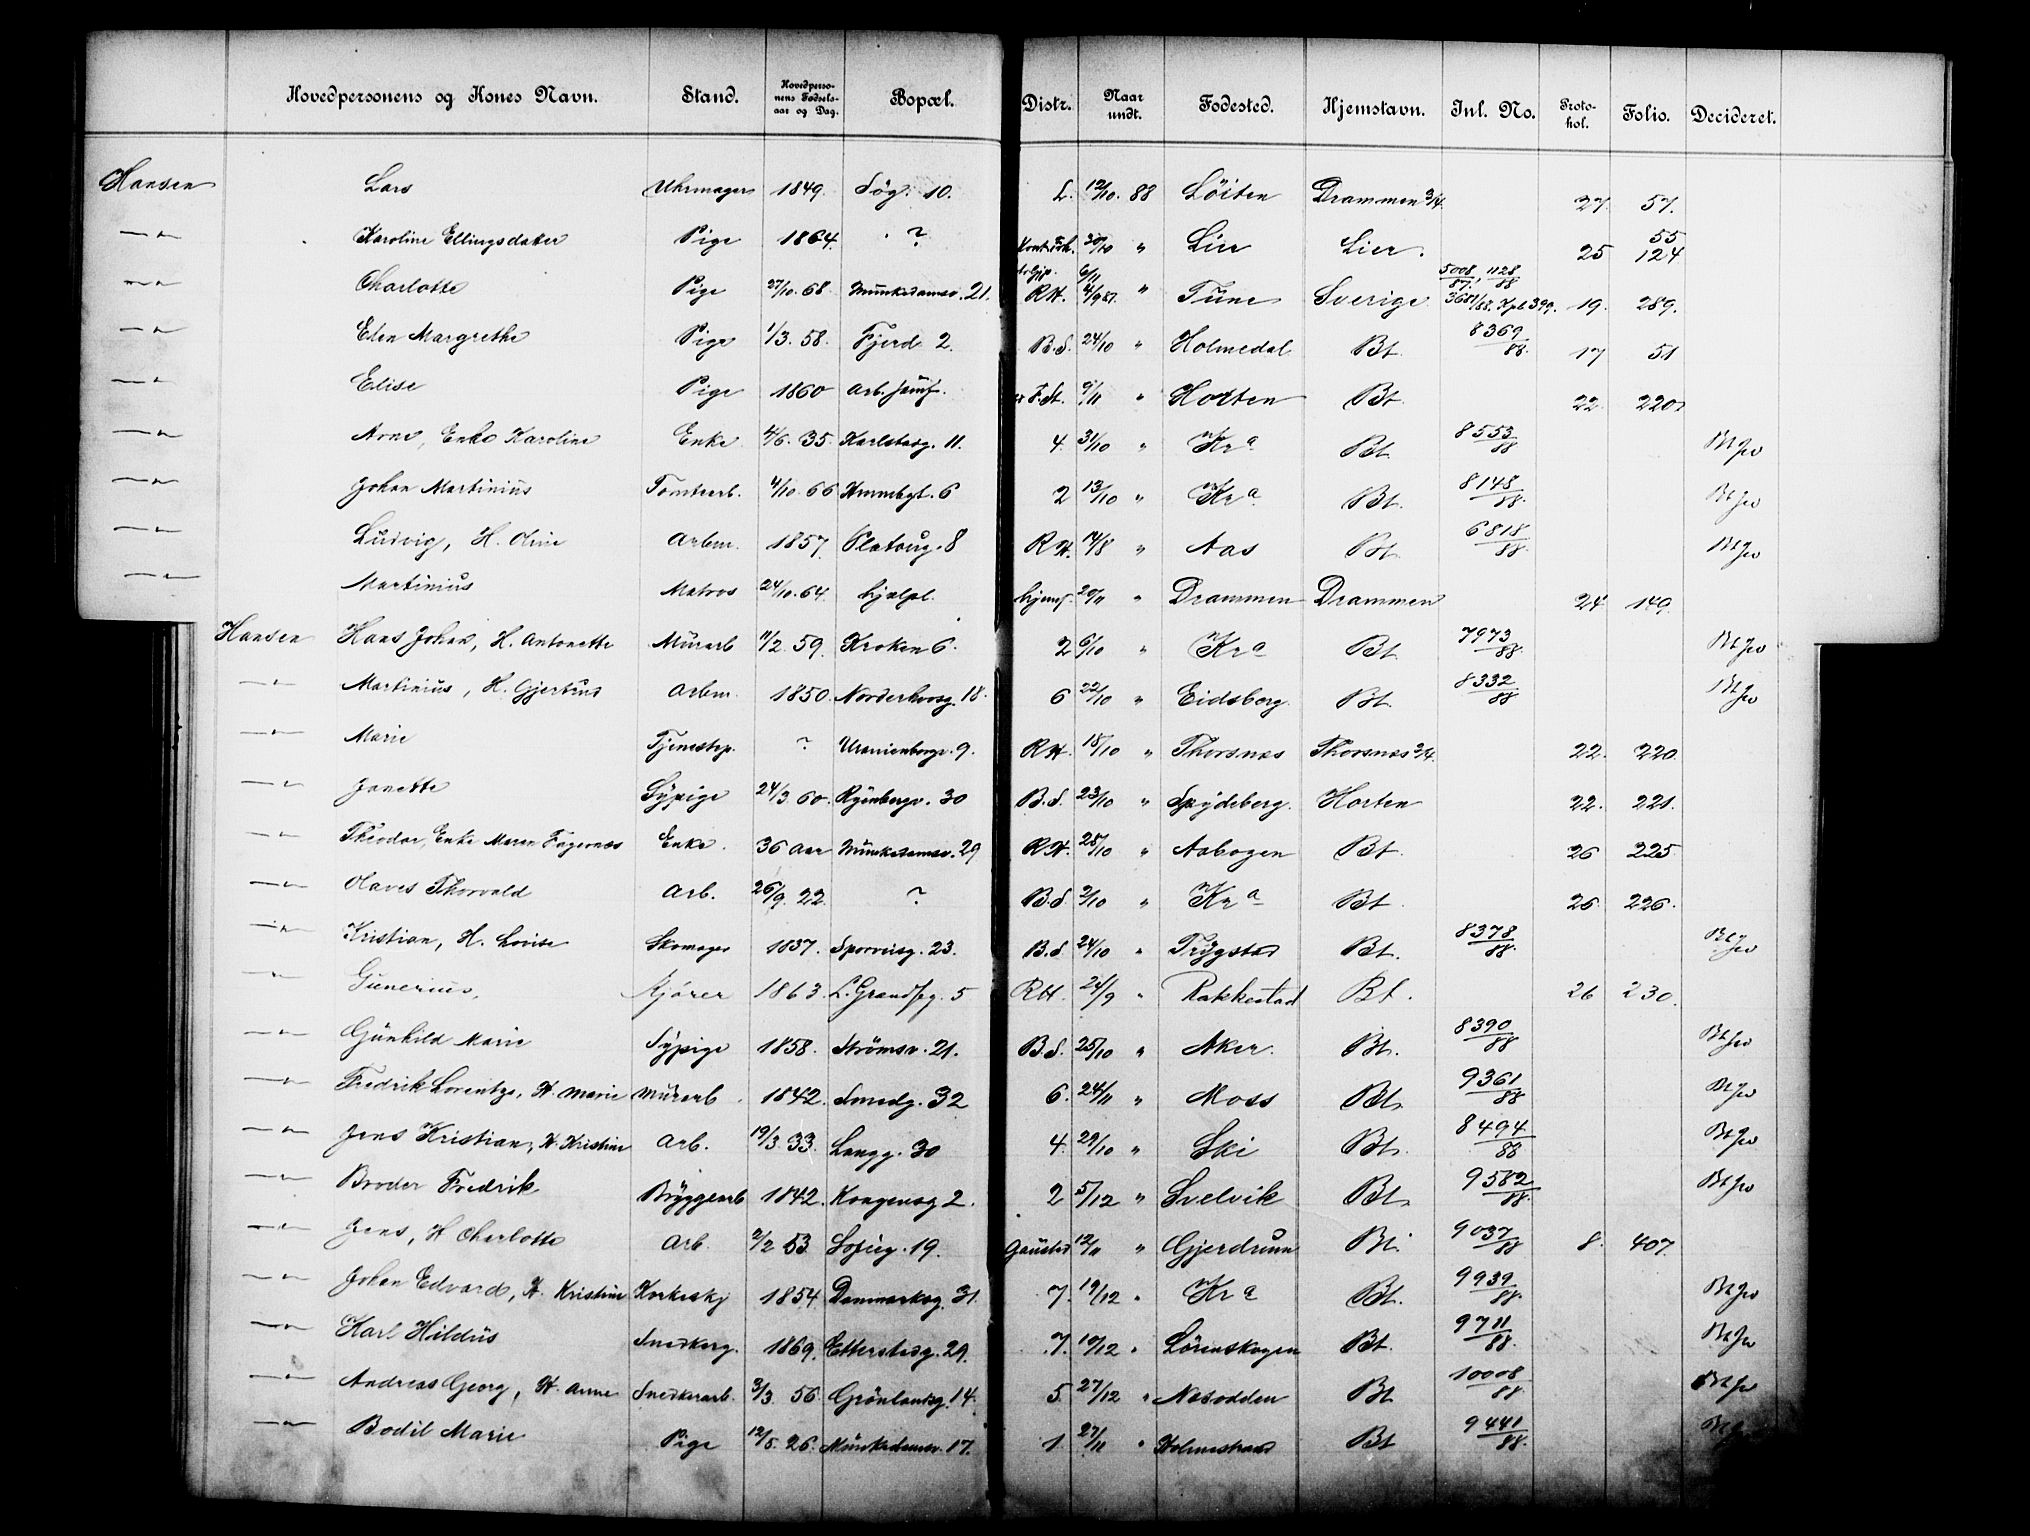 Hovedpersonens og Kones Navn. Stand. Hovedperso-nens Fødsels-aar og Dag. Bopæl. Distr. Naar undt. Fødested. Hjemstavn. Inl. No. Proto-kol. Folio. Decideret.
Hansen Lars Uhrmager 1849. Søg. 10. L. 12/10. 88 Löiten Drammen 3/4. 27. 57.
—"— Karoline Ellingsdatter Pige 1864. ? 30/10 " Lier Lier. 25 55 124
—"— Charlotte Pige 27/10. 68. Munkedamsv. 21. RH. 6/11 4/9 87. " Tune Sverige 5008/87. 1128/88 3681/88. 19. 289.
—"— Elen Margrethe Pige 1/3. 58. Fjerd. 2. B.S. 24/10 " Holmedal Bt. 8369/88. 17 51
—"— Elise Pige 1860 9/11 " Horten Bt. 22. 220
—"— Arne, Enke Karoline Enke 4/6. 35. Karlsborg. 11. 4. 31/10 " Kra Bt. 8553/88 Bt Jw
—"— Johan Martinius Tomtearb. 4/10. 66 6 2 13/10 " Kra. Bt. 8148/88. Bt Jw
—"— Ludvig, H. Oline Arbm. 1857. Platoug. 8 RH. 14/8 " Aas Bt. 6818/88. Bt Jw
—"— Martinius Matros 24/10. 64. hjælpl. 20/11 " Drammen Drammen 24 149.
Hansen Hans Johan, H. Antonette Murarb 11/2. 59. Kroken 6. 2 6/10 " Kra Bt. 7973/88. Bt Jw
—"— Martinius, H. Gjertrud Arbm. 1850. Norderhovsg. 18. 6 22/10 " Eidsberg. Bt. 8332/88 Bt Jw
—"— Marie Tjenestep. ? Uranienborgv. 9. RH. 18/10 " Thorsnæs Thorsnæs 3/4. 22. 220.
—"— Janette Sypige 24/3. 60. Ryenbergv. 30 B.S. 23/10 " Spydeberg. Horten 22. 221.
—"— Theodor, Enke Maren Fagernæs Enke. 36 Aar Munkedamsv. 29 RH. 28/10 " Aabogen Bt. 26 225.
—"— Olaves Thorvald Arb. 26/9. 22. ? B.S. 2/10 " Kra Bt. 26. 226.
—"— Kristian, H. Lovise Skomager 1837. Sporveisg. 23. B.S. 24/10 " Trygstad Bt. 8378/88. Bt Jw
—"— Gunerius, Kjörer 1863. L. Grændseg. 5 RH. 24/9 " Rakkestad Bt. 26 230.
—"— Gunhild Marie Sypige 1858. Strömsv. 21. B.S. 25/10 " Aker. Bt. 8390/88 Bt Jw
—"— Fredrik Lorentze, H. Marie Murarb 1842. Smedg. 32 6. 24/11 " Moss Bt. 9361/88 Bt Jw
—"— Jens Kristian, H. Kristine Arb. 19/3. 33. Langg. 30 4. 29/10 " Ski Bt. 8494/88 Bt Jw
—"— Broder Fredrik Bryggearb 1842. Kongensg 2. 2 5/12 " Svelvik Bt. 9582/88. Bt Jw
—"— Jens, H Charlotte Arb. 2/2 53. Sofieg. 19. Gausted 12/11 " Gjerdrum Bt. 9037/88 8. 407.
—"— Johan Edvard, H. Kristine Korkeskj 1854. Danmarksg. 31. 7. 19/12 " Kra Bt. 9939/88. Bt Jw
—"— Karl Hildus Snedkerg. 1869. Etterstedg. 29. 7. 10/12 " Lörenskogen Bt. 9711/88. Bt Jw
—"— Andreas Georg, H. Anne Snedkerarb. 3/3. 56. Grönlandsg. 14. 5. 27/12 " Nesodden Bt 10008/88 Bt Jw
—"— Bodil Marie Pige 12/5. 26. Munkedamsv. 17. 1. 27/11 " Holmestrand Bt 9441/88. Bt